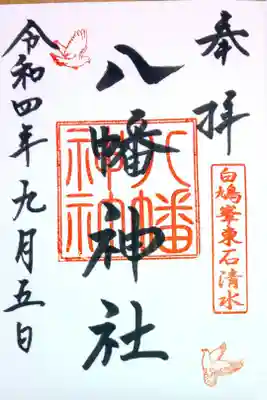 奉拝
白鳩峯東石清水
八幡神社
八幡神社
令和四年九月五日